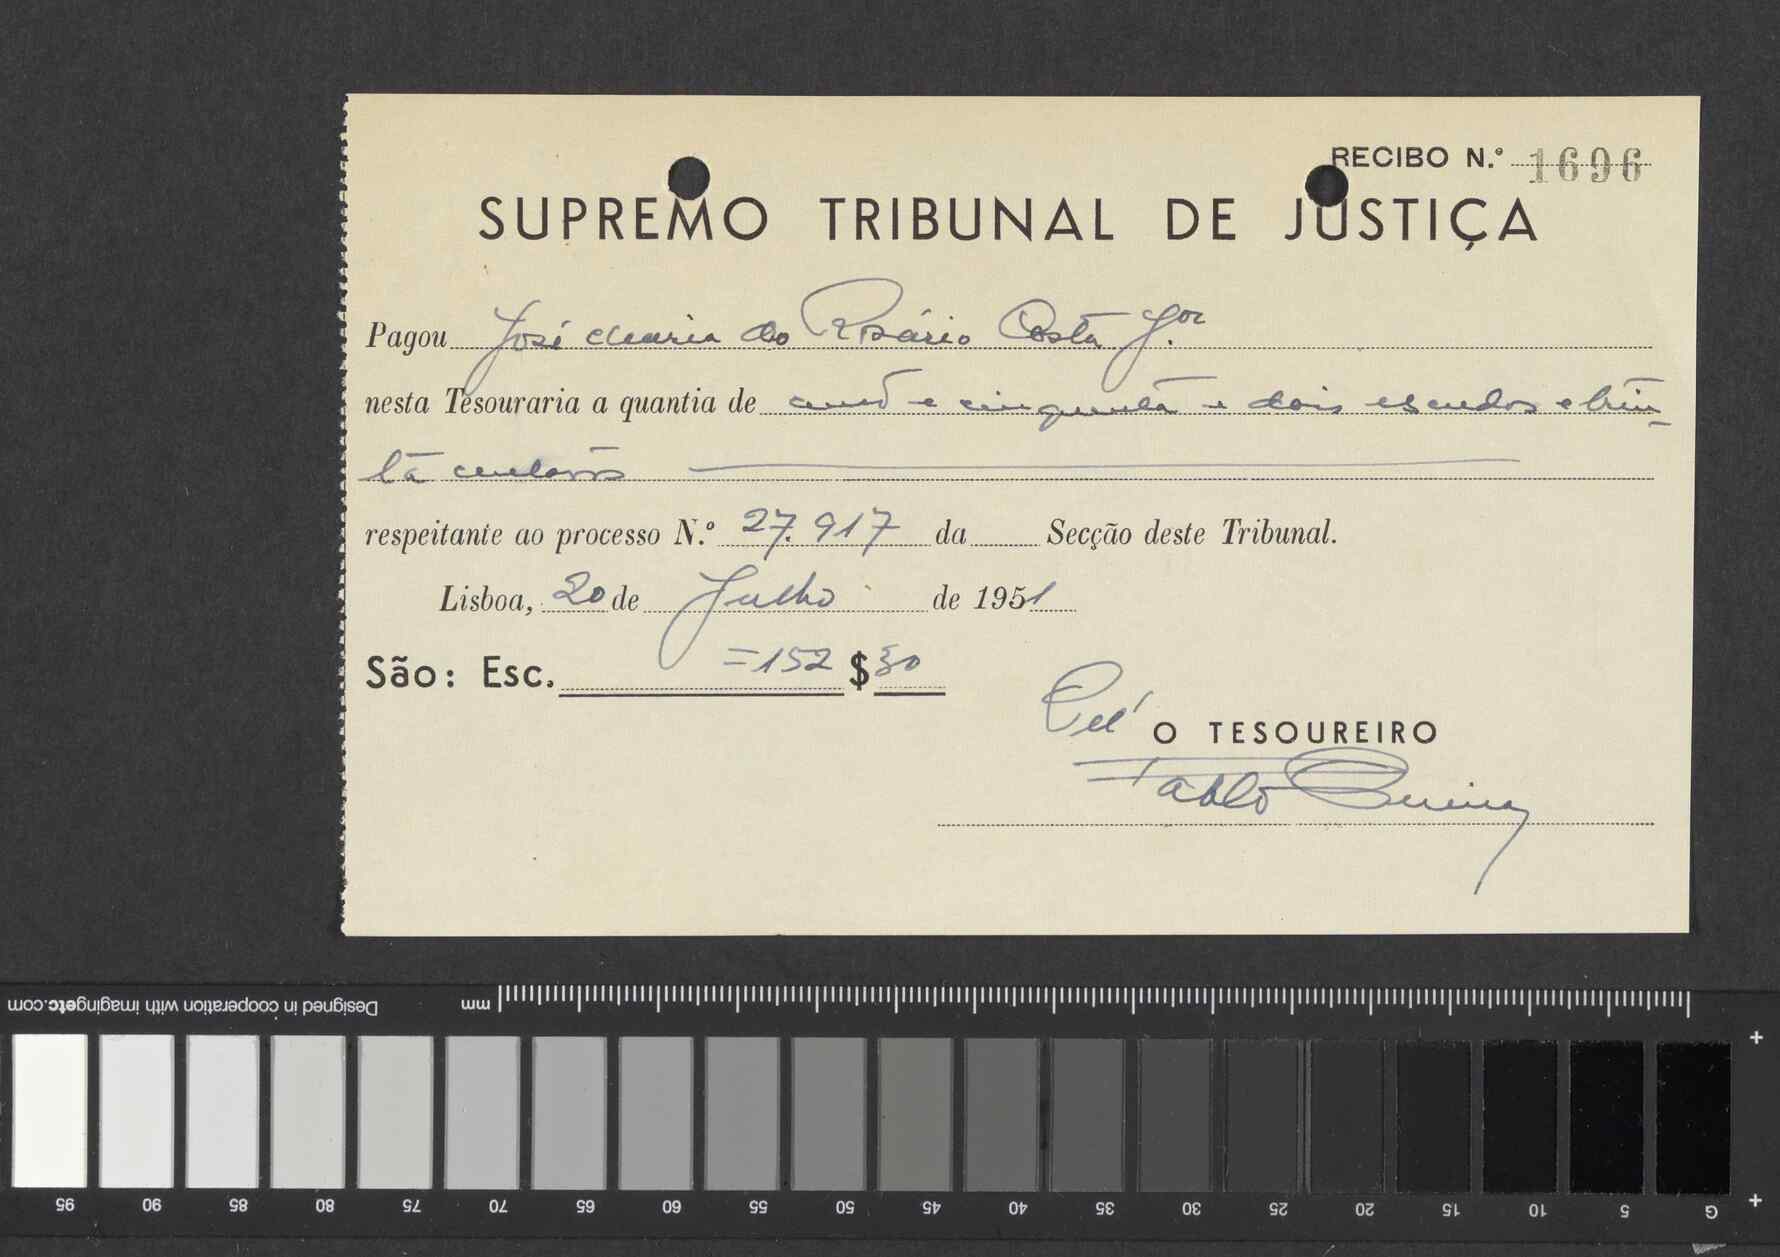 RECIBO N.º 1696
SUPREMO TRIBUNAL DE JUSTIÇA
Pagou José Maria do Rosário Costa J.or
nesta Tesouraria a quantia de cento e cinquenta e dois escudos e trin-
ta centavos
respeitante ao processo N.º 27.917 da Secção deste Tribunal.
Lisboa, 20 de Julho de 1951
São: Esc. =152 $ 30
O TESOUREIRO
Pablo
Designed in cooperation with imagingetc.com
mm
95 90 85 80 75 70 65 60 55 50 45 40 35 30 25 20 15 10 5 G